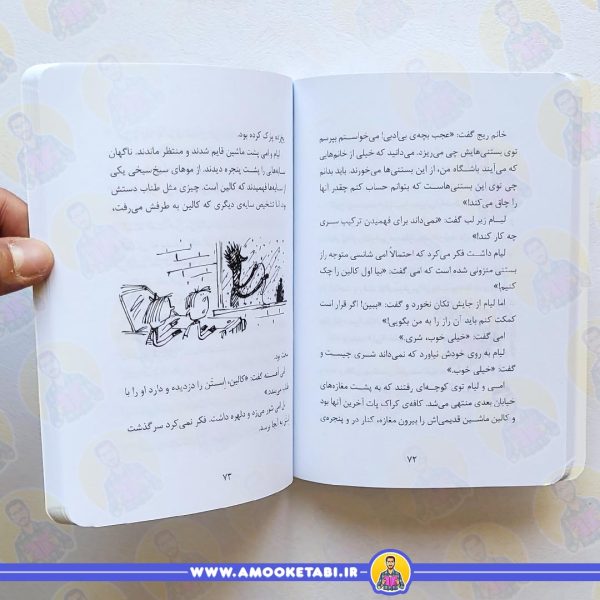 خانم ریج گفت: «عجب بچه‌ی بی‌ادبی! می‌خواستم بپرسم
توی بستنی‌هایش چی می‌ریزد. می‌دانید که خیلی از خانم‌هایی
که می‌آیند باشگاه من، از این بستنی‌ها می‌خورند. باید بدانم
چی توی این بستنی‌هاست که بتوانم حساب کنم چقدر آنها
را چاق می‌کند!»
لیام زیر لب گفت: «نمی‌داند برای فهمیدن ترکیب سری
چه کار کند!»
لیام داشت فکر می‌کرد که احتمالاً امی شانسی متوجه راز
بستنی منزونی شده است که امی گفت: «بیا اول کالین را چک
کنیم!»
اما لیام از جایش تکان نخورد و گفت: «ببین! اگر قرار است
کمکت کنم باید آن راز را به من بگویی!»
امی گفت: «خیلی خوب، شری.»
لیام به روی خودش نیاورد که نمی‌داند شری چیست و
گفت: «خیلی خوب.»
امی و لیام توی کوچه‌ای رفتند که به پشت مغازه‌های
خیابان بعدی منتهی می‌شد. کافه‌ی کراک پات آخرین آنها بود
و کالین ماشین قدیمی‌اش را بیرون مغازه، کنار در و پنجره‌ی
۷۲
پارک کرده بود.
لیام و امی پشت ماشین قایم شدند و منتظر ماندند. ناگهان
سایه‌هایی را پشت پنجره دیدند. از موهای سیخ‌سیخی یکی
از سایه‌ها فهمیدند که کالین است. چیزی مثل طناب دستش
بود اما تشخیص سایه‌ی دیگری که کالین به طرفش می‌رفت،
سخت بود.
امی آهسته گفت: «کالین، استن را دزدیده و دارد او را با
می‌بندد!»
امی شور می‌زد و دلهره داشت. فکر نمی‌کرد سرگذشت
به آنجا برسد.
۷۳
WWW.AMOOKETABI.IR